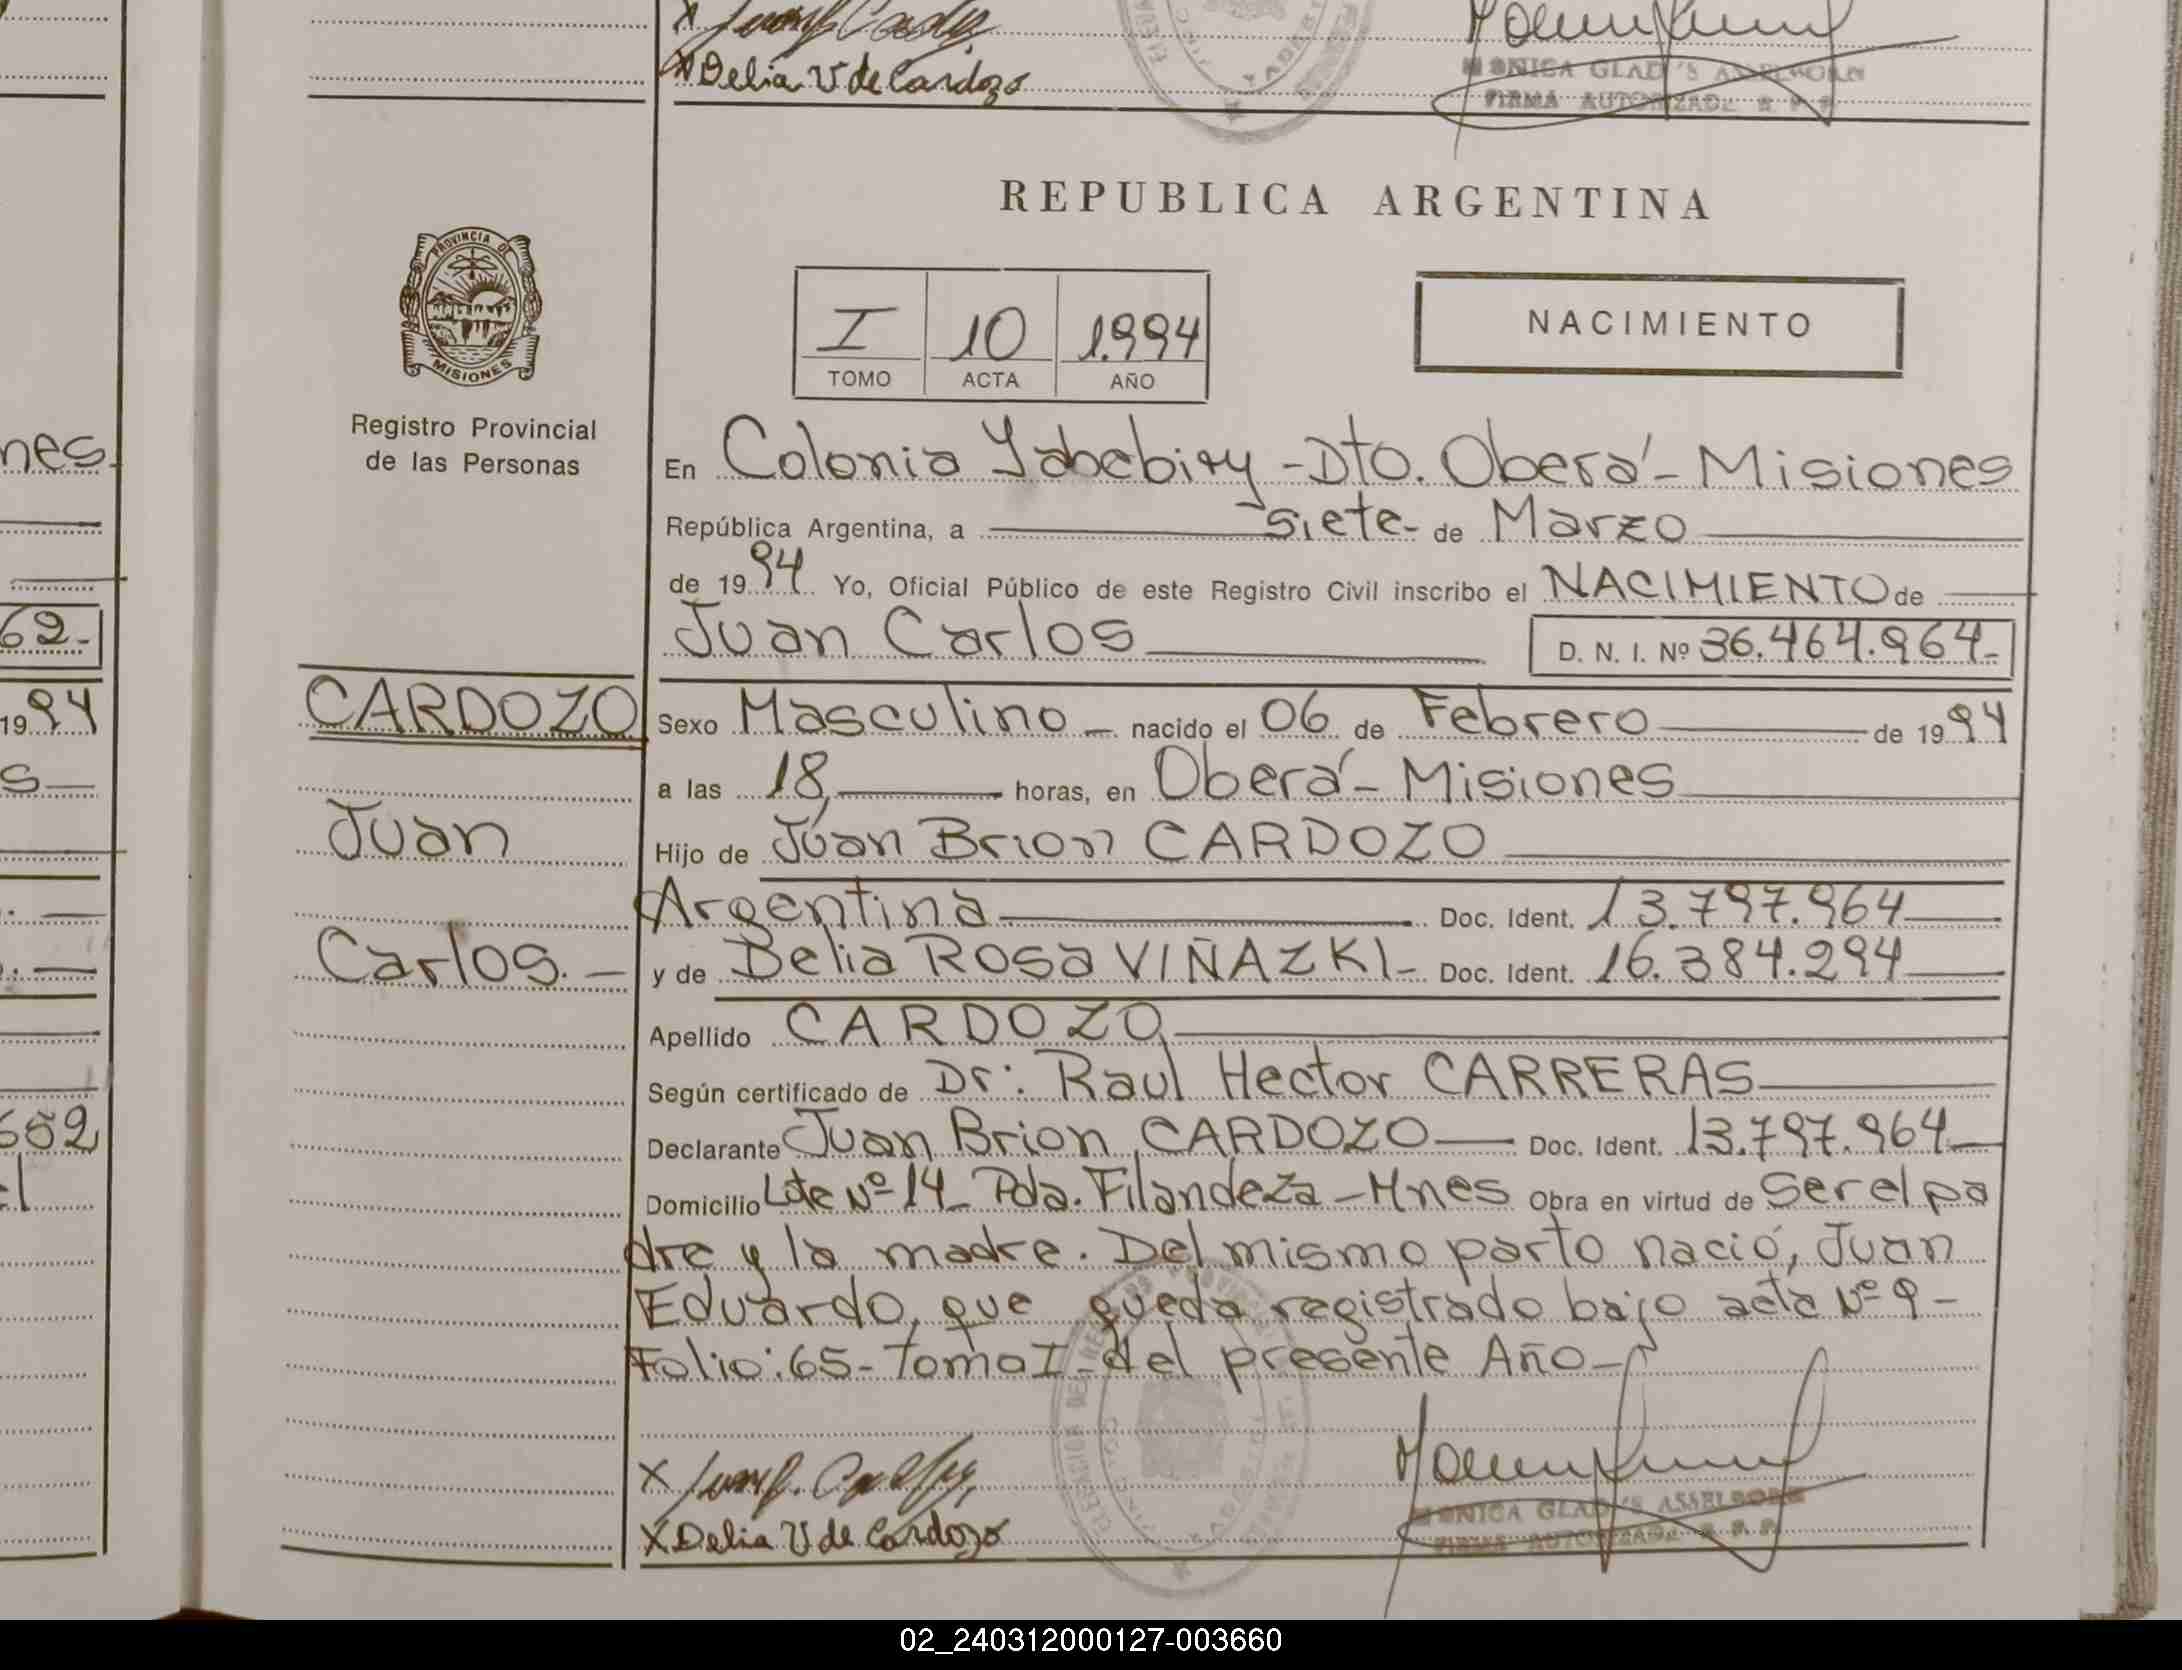 Delia V de Cardozo
MONICA GLADYS ASSELBORN
FIRMA AUTORIZADA R. P. P.
REPUBLICA ARGENTINA
PROVINCIA DE
MISIONES
I 10 1.994
TOMO ACTA AÑO
NACIMIENTO
Registro Provincial
de las Personas
En Colonia Yabebiry - Dto. Oberá - Misiones
República Argentina, a siete - de Marzo
de 1994 Yo, Oficial Público de este Registro Civil inscribo el NACIMIENTO de
Juan Carlos D. N. I. Nº 36.464.964-
CARDOZO
Sexo Masculino - nacido el 06 de Febrero de 1994
a las 18, horas, en Oberá - Misiones
Juan
Hijo de Juan Brion CARDOZO
Argentina Doc. Ident. 13.797.964
Carlos. -
y de Belia Rosa VIÑAZKI - Doc. Ident. 16.384.294
Apellido CARDOZO
Según certificado de Dr: Raul Hector CARRERAS
Declarante Juan Brion CARDOZO Doc. Ident. 13.797.964
Domicilio Lote Nº 14 - Pda. Filandeza - Mnes Obra en virtud de Ser el pa
dre y la madre. Del mismo parto nació, Juan
Eduardo, que queda registrado bajo acta Nº 9 -
Folio: 65 - Tomo I del presente Año -
X
X Delia V de Cardozo
MONICA GLADYS ASSELBORN
FIRMA AUTORIZADA R. P. P.
02_240312000127-003660